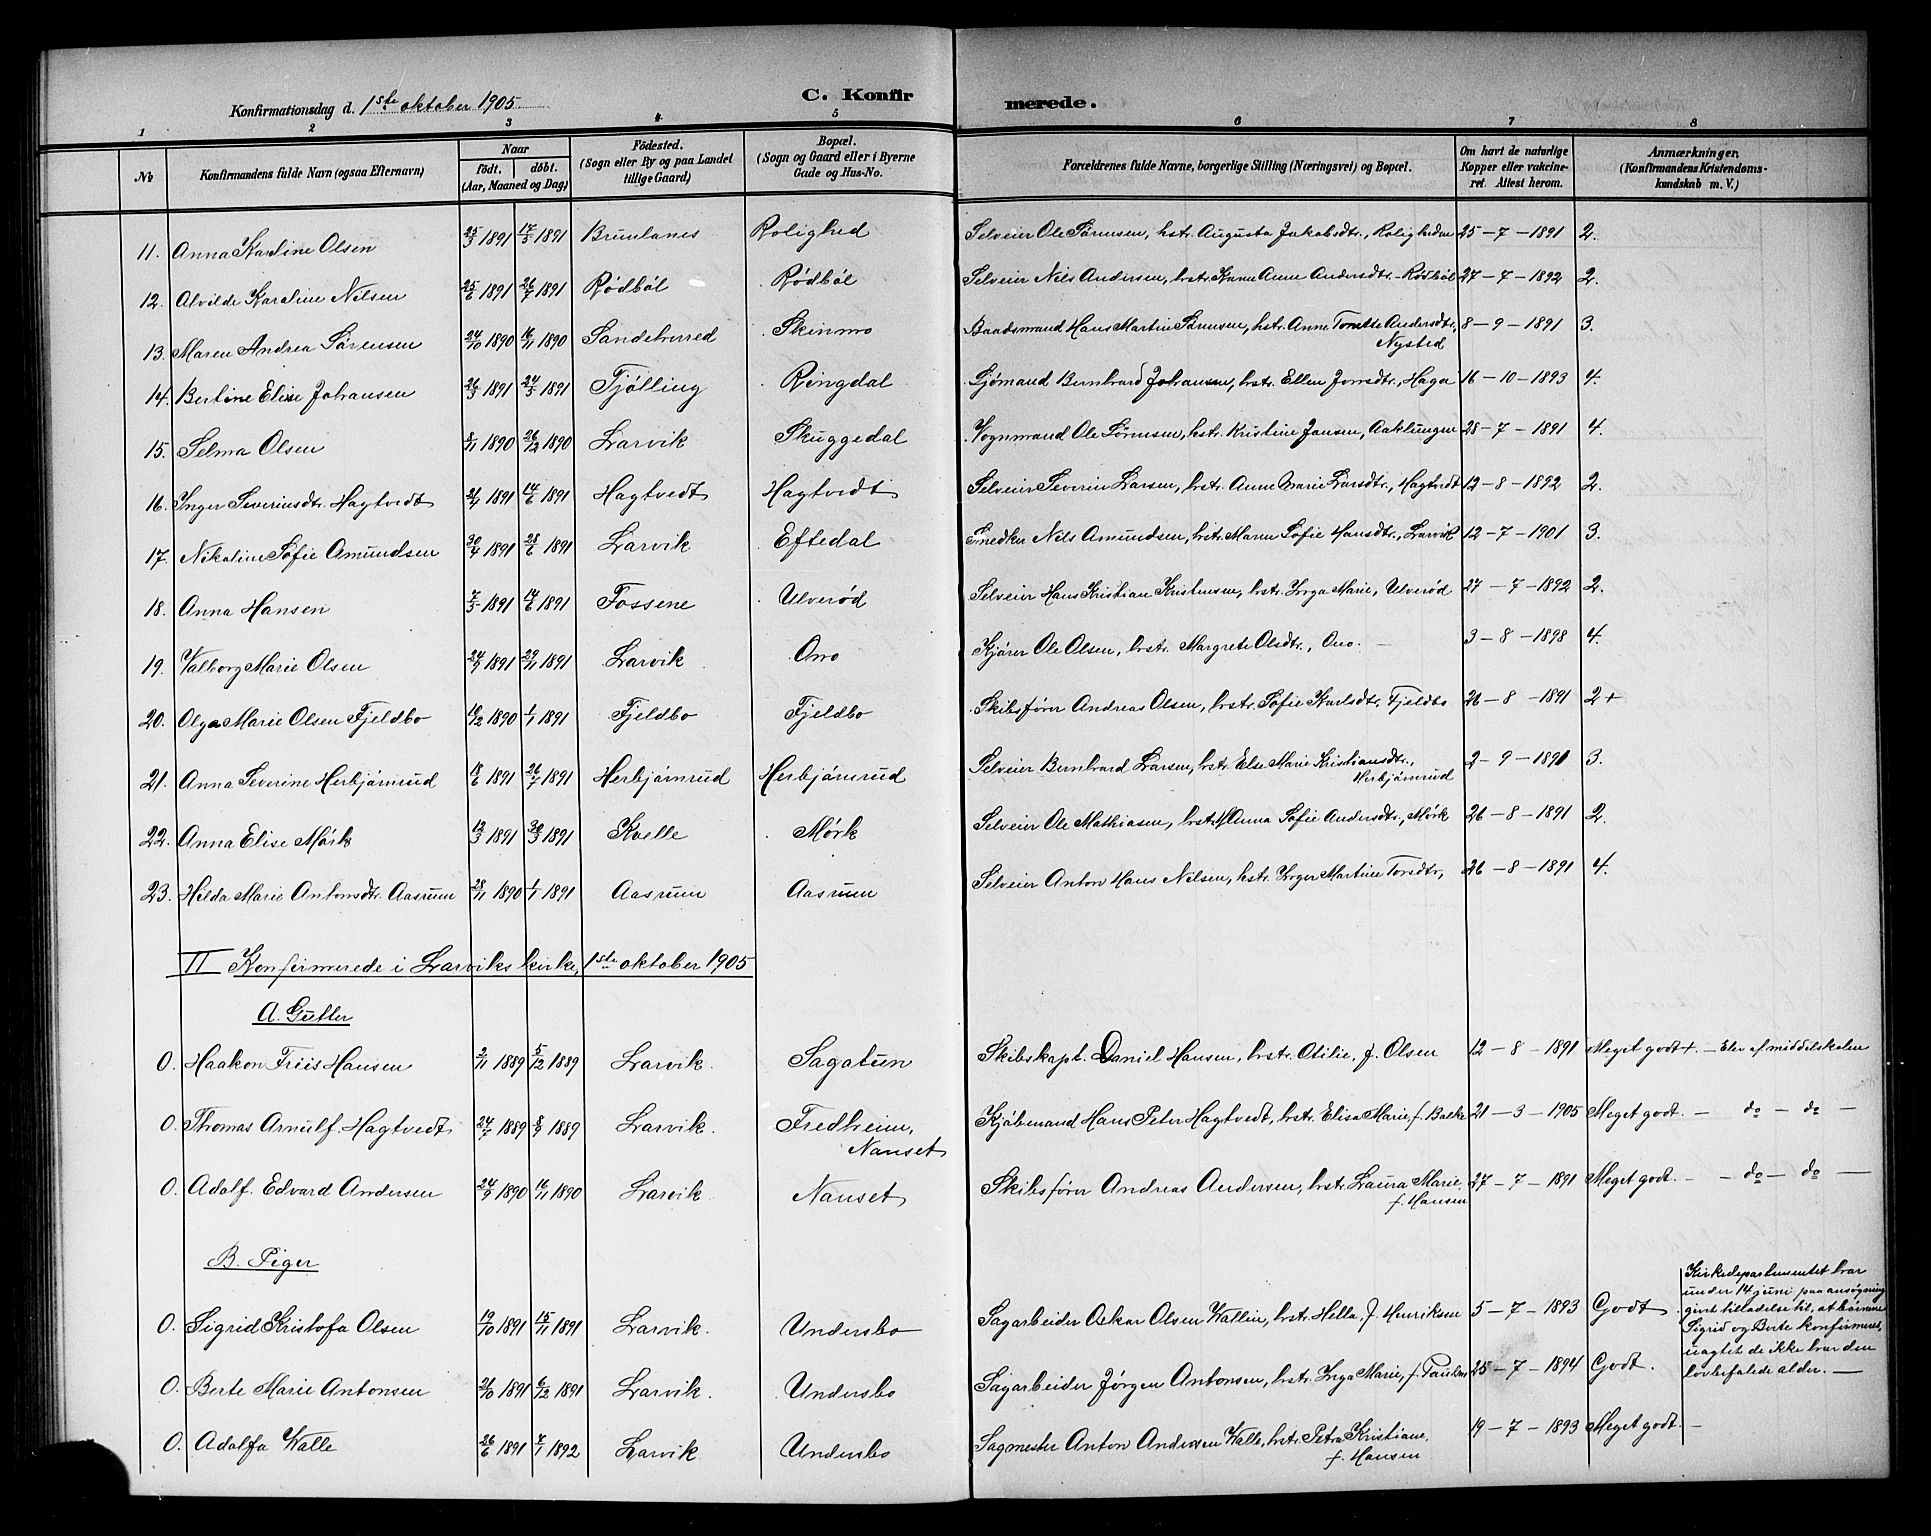 Konfirmationsdag d. 1ste oktober 1905.
C. Konfirmerede.
1 2 3 4 5 6 7 8
No
Konfirmandens fulde Navn (ogsaa Efternavn)
Naar
født. døbt.
(Aar, Maaned og Dag)
Födested.
(Sogn eller By og paa Landet
tillige Gaard)
Bopæl.
(Sogn og Gaard eller i Byerne
Gade og Hus-No.
Forældrenes fulde Navne, borgerlige Stilling (Næringsvei) og Bopæl.
Om havt de naturlige
Kopper eller vakcine-
ret. Attest herom.
Anmærkninger.
(Konfirmandens Kristendoms-
kundskab m. V.)
11. Anna Karline Olsen 25/3 1891 17/5 1891 Brunlanes Rolighed Selveier Ole Sørensen, hstr. Augusta Jakobsdtr., Roligheden 25-7-1891 2.
12. Alvilde Karoline Nilsen 25/6 1891 26/7 1891 Rødbøl Rødbøl Selveier Nils Andersen, hstr. Karen Anne Andersdtr. Rødbøl 27-7-1892 2.
13. Maren Andrea Sørensen 24/10 1890 16/11 1890 Sandeherred Skinmo Baadsmand Hans Martin Sørensen, hstr. Anne Torette Andersdtr., 8-9-1891 3.
Nysted
14. Bertine Elise Johansen 26/3 1891 24/5 1891 Tjølling Ringdal Sjømand Bernhard Johansen, hstr. Ellen Jonsdtr., Hagen 16-10-1893 4.
15. Selma Olsen 8/11 1890 26/12 1890 Larvik Skuggedal Vognmand Ole Sørensen, hstr. Kristine Jansen, Aaklungen 28-7-1891 4.
16. Inger Severinsdtr. Hagtvedt 21/4 1891 14/6 1891 Hagtvedt Hagtvedt Selveier Severin Larsen, hstr. Anne Marie Larsdtr., Hagtvedt 12-8-1892 2.
17. Nikoline Sofie Amundsen 30/4 1891 28/6 1891 Larvik Eftedal Snedker Nils Amundsen, hstr. Maren Sofie Hansdtr., Larvik 12-7-1901 3.
18. Anna Hansen 7/5 1891 14/6 1891 Fossene Ulverød Selveier Hans Kristian Kristensen, hstr. Inga Marie, Ulverød 27-7-1892 2.
19. Valborg Marie Olsen 24/9 1891 29/11 1891 Larvik Ono Kjører Ole Olsen, hstr. Margrete Olsdtr., Ono. 3-8-1898 4.
20. Olga Marie Olsen Fjeldbo 10/12 1890 1/1 1891 Fjeldbo Fjeldbo Skibsfører Andreas Olsen, hstr. Sofie Karlsdtr. Fjeldbo 26-8-1891 2+
21. Anna Severine Herbjørnrud 18/6 1891 26/7 1891 Herbjørnrud Herbjørnrud Selveier Bernhard Larsen, hstr. Else Marie Kristiansdtr., 2-9-1891 3.
Herbjørnrud
22. Anna Elise Mørk 12/3 1891 30/3 1891 Kvelle Mørk Selveier Ole Mathiasen, hstr. Anna Sofie Andersdtr., Mørk 26-8-1891 2.
23. Hilda Marie Antonsdtr. Aasrum 28/11 1890 1/1 1891 Aasrum Aasrum Selveier Anton Hans Nilsen, hstr. Inger Martine Torsdtr, 26-8-1891 4.
II Konfirmerede i Larviks kirke, 1ste oktober 1905
A. Gutter
0. Haakon Friis Hansen 2/11 1889 5/12 1889 Larvik. Sagatun Skibskapt. Daniel Hansen, hstr. Otilie, f. Olsen 12-8-1891 Meget godt+. - Elev af middelskolen
0. Thomas Arnulf Hagtvedt 24/7 1889 8/9 1889 Larvik. Fredheim, Kjøbmand Hans Peter Hagtvedt, hstr. Elisa Marie, f. Bakke 21-3-1905 Meget godt. - do - do -
Nanset
0. Adolf Edvard Andersen 24/9 1890 16/11 1890 Larvik. Nanset Skibsfører Andreas Andersen, hstr. Laura Marie, 27-7-1891 Meget godt. - - do - do -
f. Hansen
B. Piger
0. Sigrid Kristofa Olsen 19/10 1891 15/11 1891 Larvik. Undersbo Sagarbeider Oskar Olsen Wallin, hstr. Hella, f. Henriksen 5-7-1893 Godt
0. Berte Marie Antonsen 21/10 1891 6/12 1891 Larvik. Undersbo Sagarbeider Jørgen Antonsen, hstr. Inga Marie, f. Paulsen 25-7-1894 Godt.
Kirkedepartementet har
under 14 juni paa ansøgning
givet tilladelse til, at børnene
Sigrid og Berte konfirmeres,
uagtet de ikke har den
lovbefalede alder. -
0. Adolfa Walle 26/6 1891 7/1 1892 Larvik Undersbo Sagmester Anton Andersen Walle, hstr. Petra Kristiane, 19-7-1893 Meget godt. -
f. Hansen